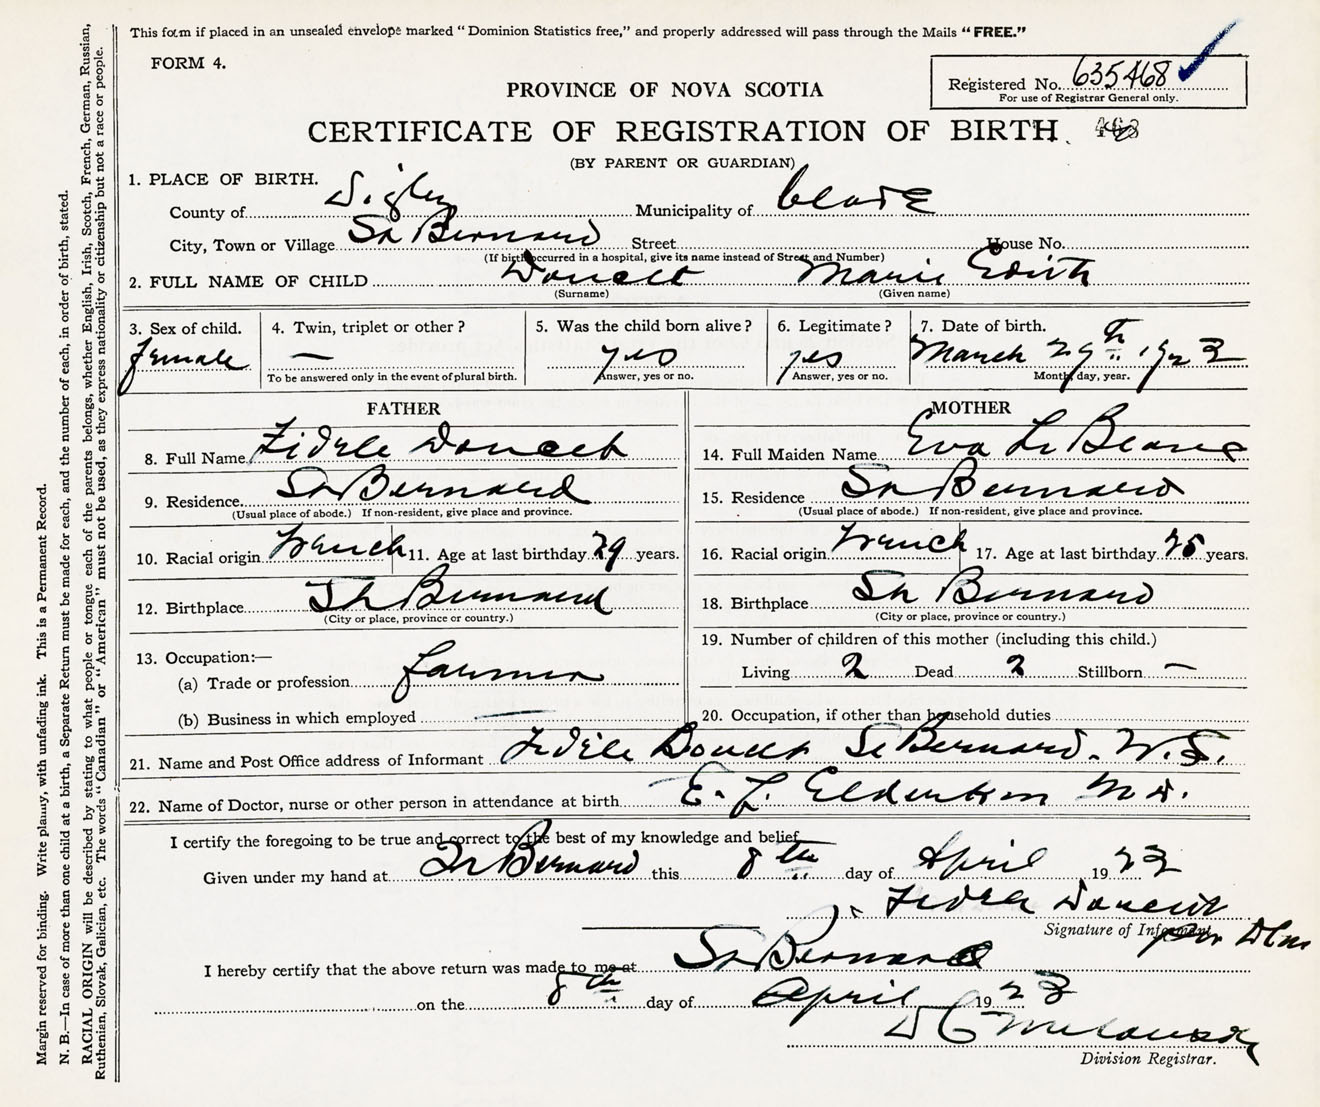 This form if placed in an unsealed envelope marked "Dominion Statistics free," and properly addressed will pass through the Mails "FREE."
FORM 4.
Registered No. 635468
For use of Registrar General only.
PROVINCE OF NOVA SCOTIA
CERTIFICATE OF REGISTRATION OF BIRTH.
(BY PARENT OR GUARDIAN)
1. PLACE OF BIRTH.
County of Digby Municipality of Clare
City, Town or Village St Bernard Street House No.
(If birth occurred in a hospital, give its name instead of Street and Number)
2. FULL NAME OF CHILD Doucet Marie Edith
(Surname) (Given name)
3. Sex of child. 4. Twin, triplet or other? 5. Was the child born alive? 6. Legitimate? 7. Date of birth.
female — yes yes March 29th 1923
To be answered only in the event of plural birth. Answer, yes or no. Answer, yes or no. Month, day, year.
FATHER MOTHER
8. Full Name Fidele Doucet 14. Full Maiden Name Eva Le Blanc
9. Residence St Bernard 15. Residence St Bernard
(Usual place of abode.) If non-resident, give place and province. (Usual place of abode.) If non-resident, give place and province.
10. Racial origin French 11. Age at last birthday 29 years. 16. Racial origin French 17. Age at last birthday 25 years.
12. Birthplace St Bernard 18. Birthplace St Bernard
(City or place, province or country.) (City or place, province or country.)
13. Occupation:— 19. Number of children of this mother (including this child.)
(a) Trade or profession farmer Living 2 Dead 2 Stillborn —
(b) Business in which employed — 20. Occupation, if other than household duties
21. Name and Post Office address of Informant Fidele Doucet St Bernard. N.S.
22. Name of Doctor, nurse or other person in attendance at birth E. L. Elderkin M D.
I certify the foregoing to be true and correct to the best of my knowledge and belief
Given under my hand at St Bernard this 8th day of April 1923
Fidele Doucet
Signature of Informant
per
I hereby certify that the above return was made to me at St Bernard
on the 8th day of April 1923
Division Registrar.
Margin reserved for binding. Write plainly, with unfading ink. This is a Permanent Record.
N. B.—In case of more than one child at a birth, a Separate Return must be made for each, and the number of each, in order of birth, stated.
RACIAL ORIGIN will be described by stating to what people or tongue each of the parents belongs, whether English, Irish, Scotch, French, German, Russian,
Ruthenian, Slovak, Galician, etc. The words "Canadian" or "American" must not be used, as they express nationality or citizenship but not a race or people.